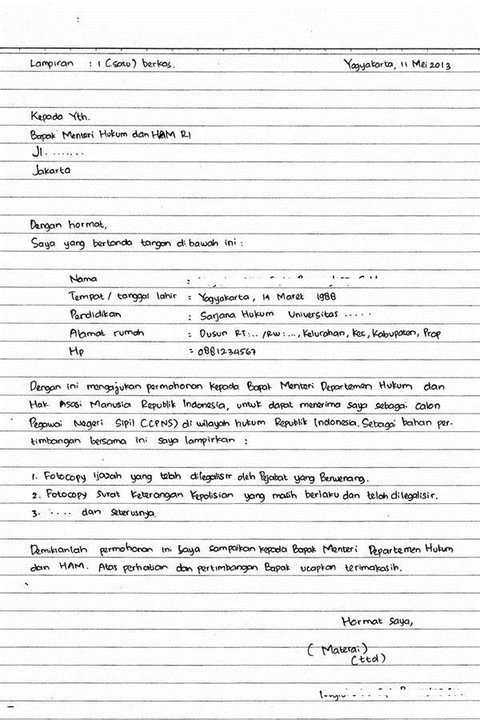 Lampiran : 1 (satu) berkas. Yogyakarta, 11 Mei 2013
Kepada Yth.
Bapak Menteri Hukum dan HAM RI
Jl. .......
Jakarta
Dengan hormat,
Saya yang bertanda tangan dibawah ini :
Nama :
Tempat / tanggal lahir : Yogyakarta, 14 Maret 1988
Pendidikan : Sarjana Hukum Universitas .....
Alamat rumah : Dusun RT:.. /RW:..., Kelurahan, Kec, Kabupaten, Prop
Hp : 0881234567
Dengan ini mengajukan permohonan kepada Bapak Menteri Departemen Hukum dan
Hak Asasi Manusia Republik Indonesia, untuk dapat menerima saya sebagai calon
Pegawai Negeri Sipil (CPNS) di wilayah hukum Republik Indonesia. Sebagai bahan per-
timbangan bersama ini saya lampirkan :
1. Fotocopy Ijazah yang telah dilegalisir oleh Pejabat yang Berwenang.
2. Fotocopy Surat Keterangan Kepolisian yang masih berlaku dan telah dilegalisir.
3. .... dan seterusnya
Demikianlah permohonan ini saya sampaikan kepada Bapak Menteri Departemen Hukum
dan HAM. Atas perhatian dan pertimbangan Bapak ucapkan terimakasih.
Hormat Saya,
( Materai )
(ttd)